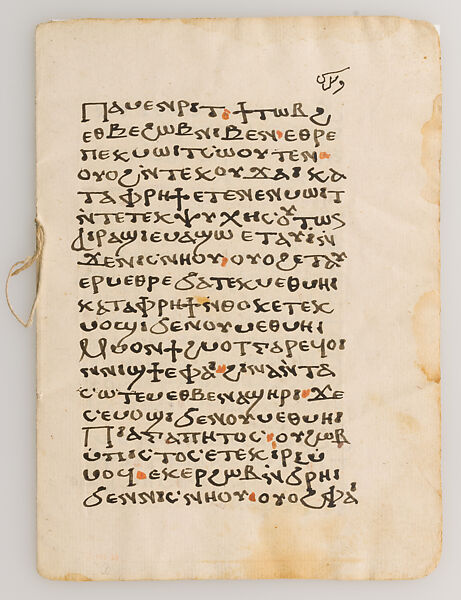 ⲡⲁⲙⲉⲛⲣⲓⲧ· ϯⲧⲱⲃϩ
ⲉⲑⲃⲉϩⲱⲃⲛⲓⲃⲉⲛ· ⲉⲑⲣⲉ
ⲡⲉⲕⲙⲱⲓⲧⲥⲱⲟⲩⲧⲉⲛ·
ⲟⲩⲟϩⲛ̀ⲧⲉⲕⲟⲩϫⲁⲓⲕⲁ
ⲧⲁⲫⲣⲏϯⲉⲧⲉⲛⲉⲛⲙⲱⲓⲧ
ⲛ̀ⲧⲉⲧⲉⲕⲯⲩⲭⲏⲥⲟⲩⲧⲱⲛ
ⲁⲓⲣⲁϣⲓⲉⲙⲁϣⲱⲉⲧⲁⲩⲓ̀ⲛ̀
ϫⲉⲛⲓⲥⲛⲏⲟⲩ· ⲟⲩⲟϩⲉⲧⲁⲩ
ⲉⲣⲙⲉⲑⲣⲉϧⲁⲧⲉⲕⲙⲉⲑⲙⲏⲓ
ⲕⲁⲧⲁⲫⲣⲏϯⲛ̀ⲑⲟⲕⲉⲧⲉⲕ
ⲙⲟϣⲓϧⲉⲛⲟⲩⲙⲉⲑⲙⲏⲓ
ⲙ̀ⲙⲟⲛϯϩⲙⲟⲧⲥⲁⲣⲉϥⲟⲓ
ⲛ̀ⲛⲓϣϯⲉⲫⲁⲓ· ϩⲓⲛⲁⲛ̀ⲧⲁ
ⲥⲱⲧⲉⲙⲉⲑⲃⲉⲛⲁϣⲏⲣⲓ· ϫⲉ
ⲥⲉⲙⲟϣⲓϧⲉⲛⲟⲩⲙⲉⲑⲙⲏⲓ
ⲡⲓⲁⲅⲁⲡⲏⲧⲟⲥ· ⲟⲩϩⲱⲃ
ⲙ̀ⲡⲓⲥⲧⲟⲥⲉⲧⲉⲕⲓⲣⲓⲙ̀
ⲙⲟϥ· ⲉⲕⲉⲣϩⲱⲃⲛ̀ϧⲣⲏⲓ
ϧⲉⲛⲛⲓⲥⲛⲏⲟⲩ· ⲟⲩⲟϩⲫⲁⲓ